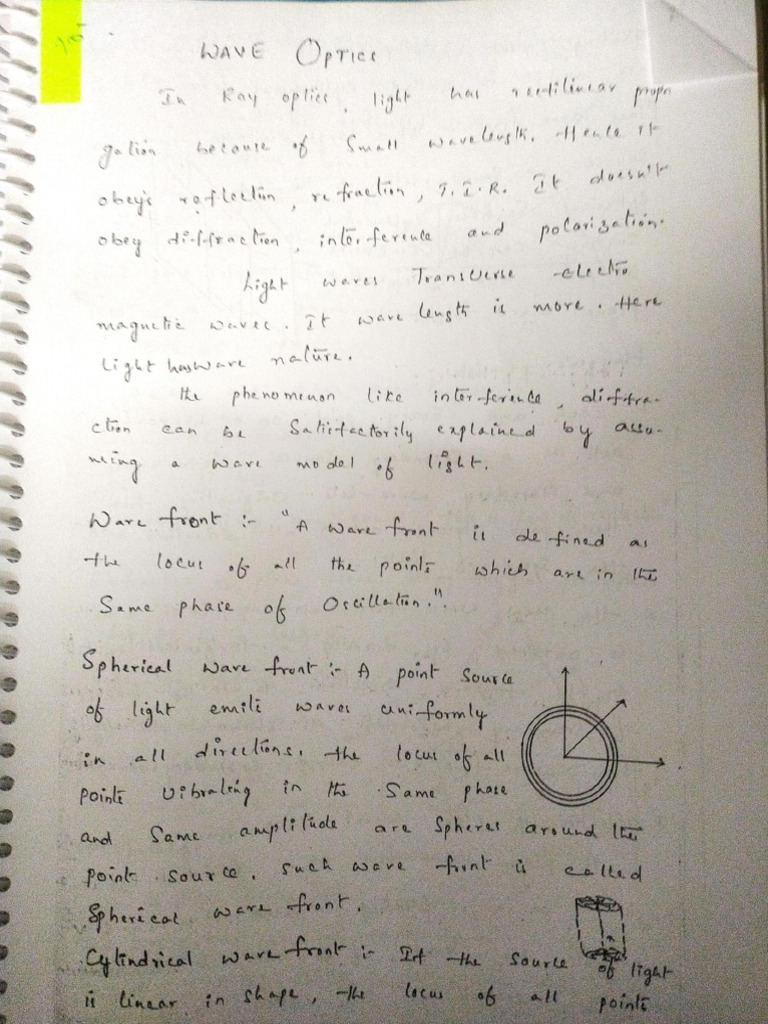 WAVE OPTICS
In Ray optics, light has rectilinear propa
gation because of Small wavelength. Hence it
obey's reflection, refraction, T.I.R. It doesn't
obey diffraction, interference and polarization.
Light waves Transverse electro
magnetic waves. It wave length is more. Here
Light has wave nature.
The phenomenon like interference, diffra-
ction can be Satisfactorily explained by assu-
ming a wave model of light.
Wave front :- "A wave front is defined as
the locus of all the points which are in the
Same phase of Oscillation.".
Spherical wave front :- A point source
of light emits waves uniformly
in all directions. the locus of all
points vibrating in the Same phase
and Same amplitude are Spheres around the
point source. Such wave front is called
Spherical wave front.
Cylindrical wave front :- If the source of light
is linear in shape, the locus of all points